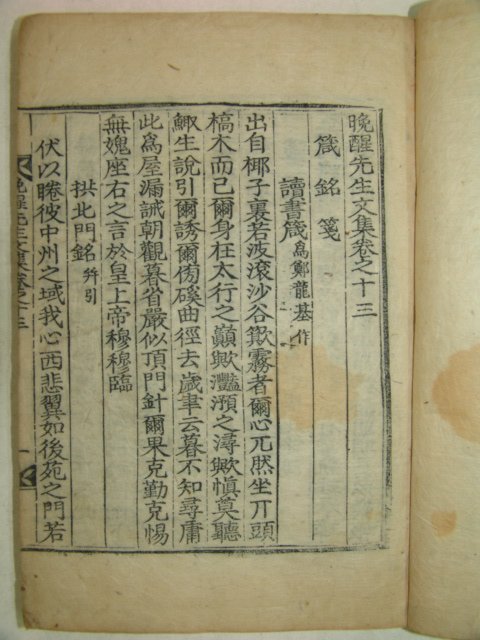 晚醒先生文集卷之十三
箴 銘 箋
讀書箴 爲鄭龍基作
出自椰子裏若波滾沙谷歕霧者爾心兀然坐丌頭
槁木而已爾身在太行之巔歟灩澦之潯歟愼莫聽
鯫生說引爾誘爾傍磎曲徑去歲聿云暮不知尋庸
此爲屋漏誡朝觀暮省嚴似頂門針爾果克勤克惕
無媿座右之言於皇上帝穆穆臨
拱北門銘 幷引
伏以睠彼中州之域我心西悲翼如後苑之門若
晚醒先生文集卷之十三 一